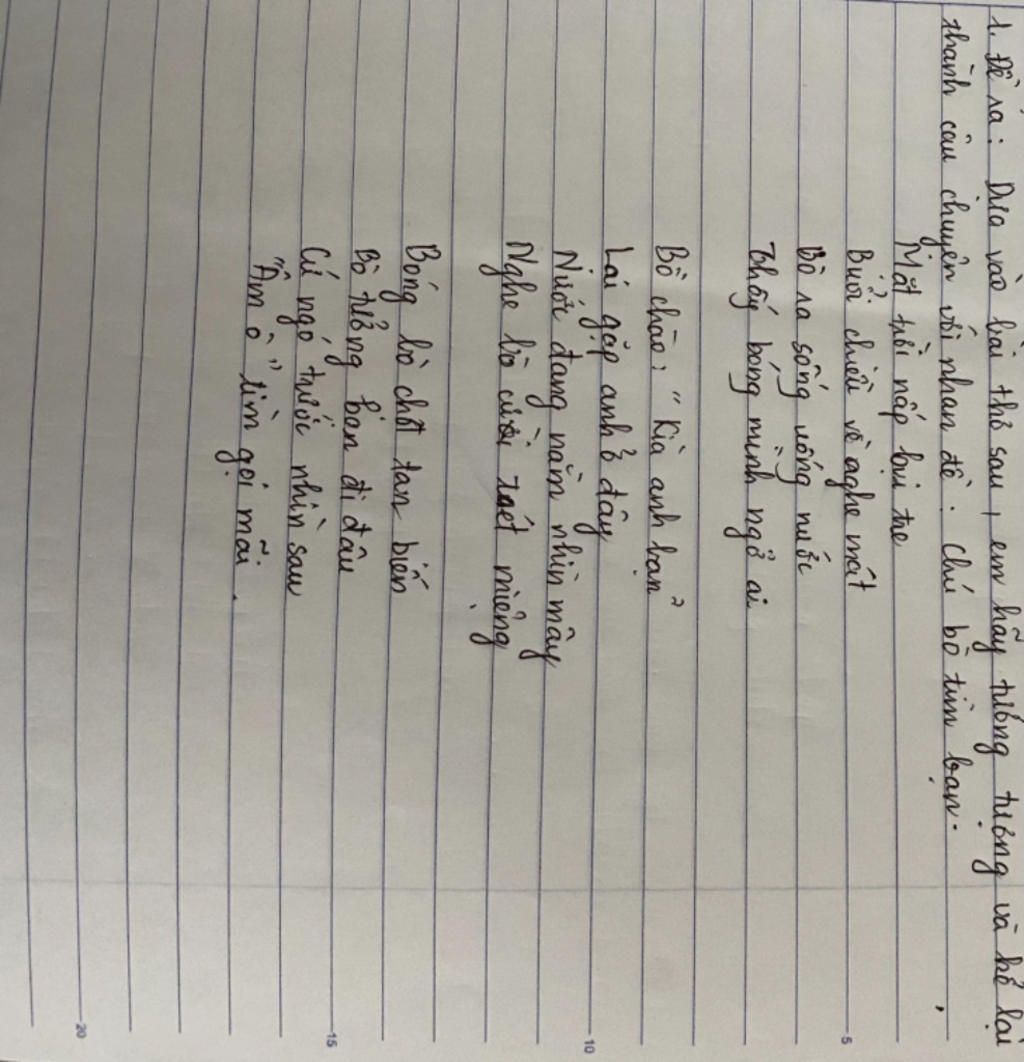 1. Đề ra: Dựa vào bài thơ sau, em hãy tưởng tượng và kể lại
thành câu chuyện với nhan đề: Chú bò tìm bạn.
Mặt trời nấp bụi tre
Buổi chiều về nghe mát
Bò ra sống uống nước
Thấy bóng mình ngỡ ai
Bò chào: "Kìa anh bạn"
Lại gặp anh ở đây
Nước đang nằm nhìn mây
Nghe bò cười toét miệng
Bóng bò chợt tan biến
Bò tưởng bạn đi đâu
Cứ ngó trước nhìn sau
"Ậm ò" tìn gọi mãi.
5
10
15
20